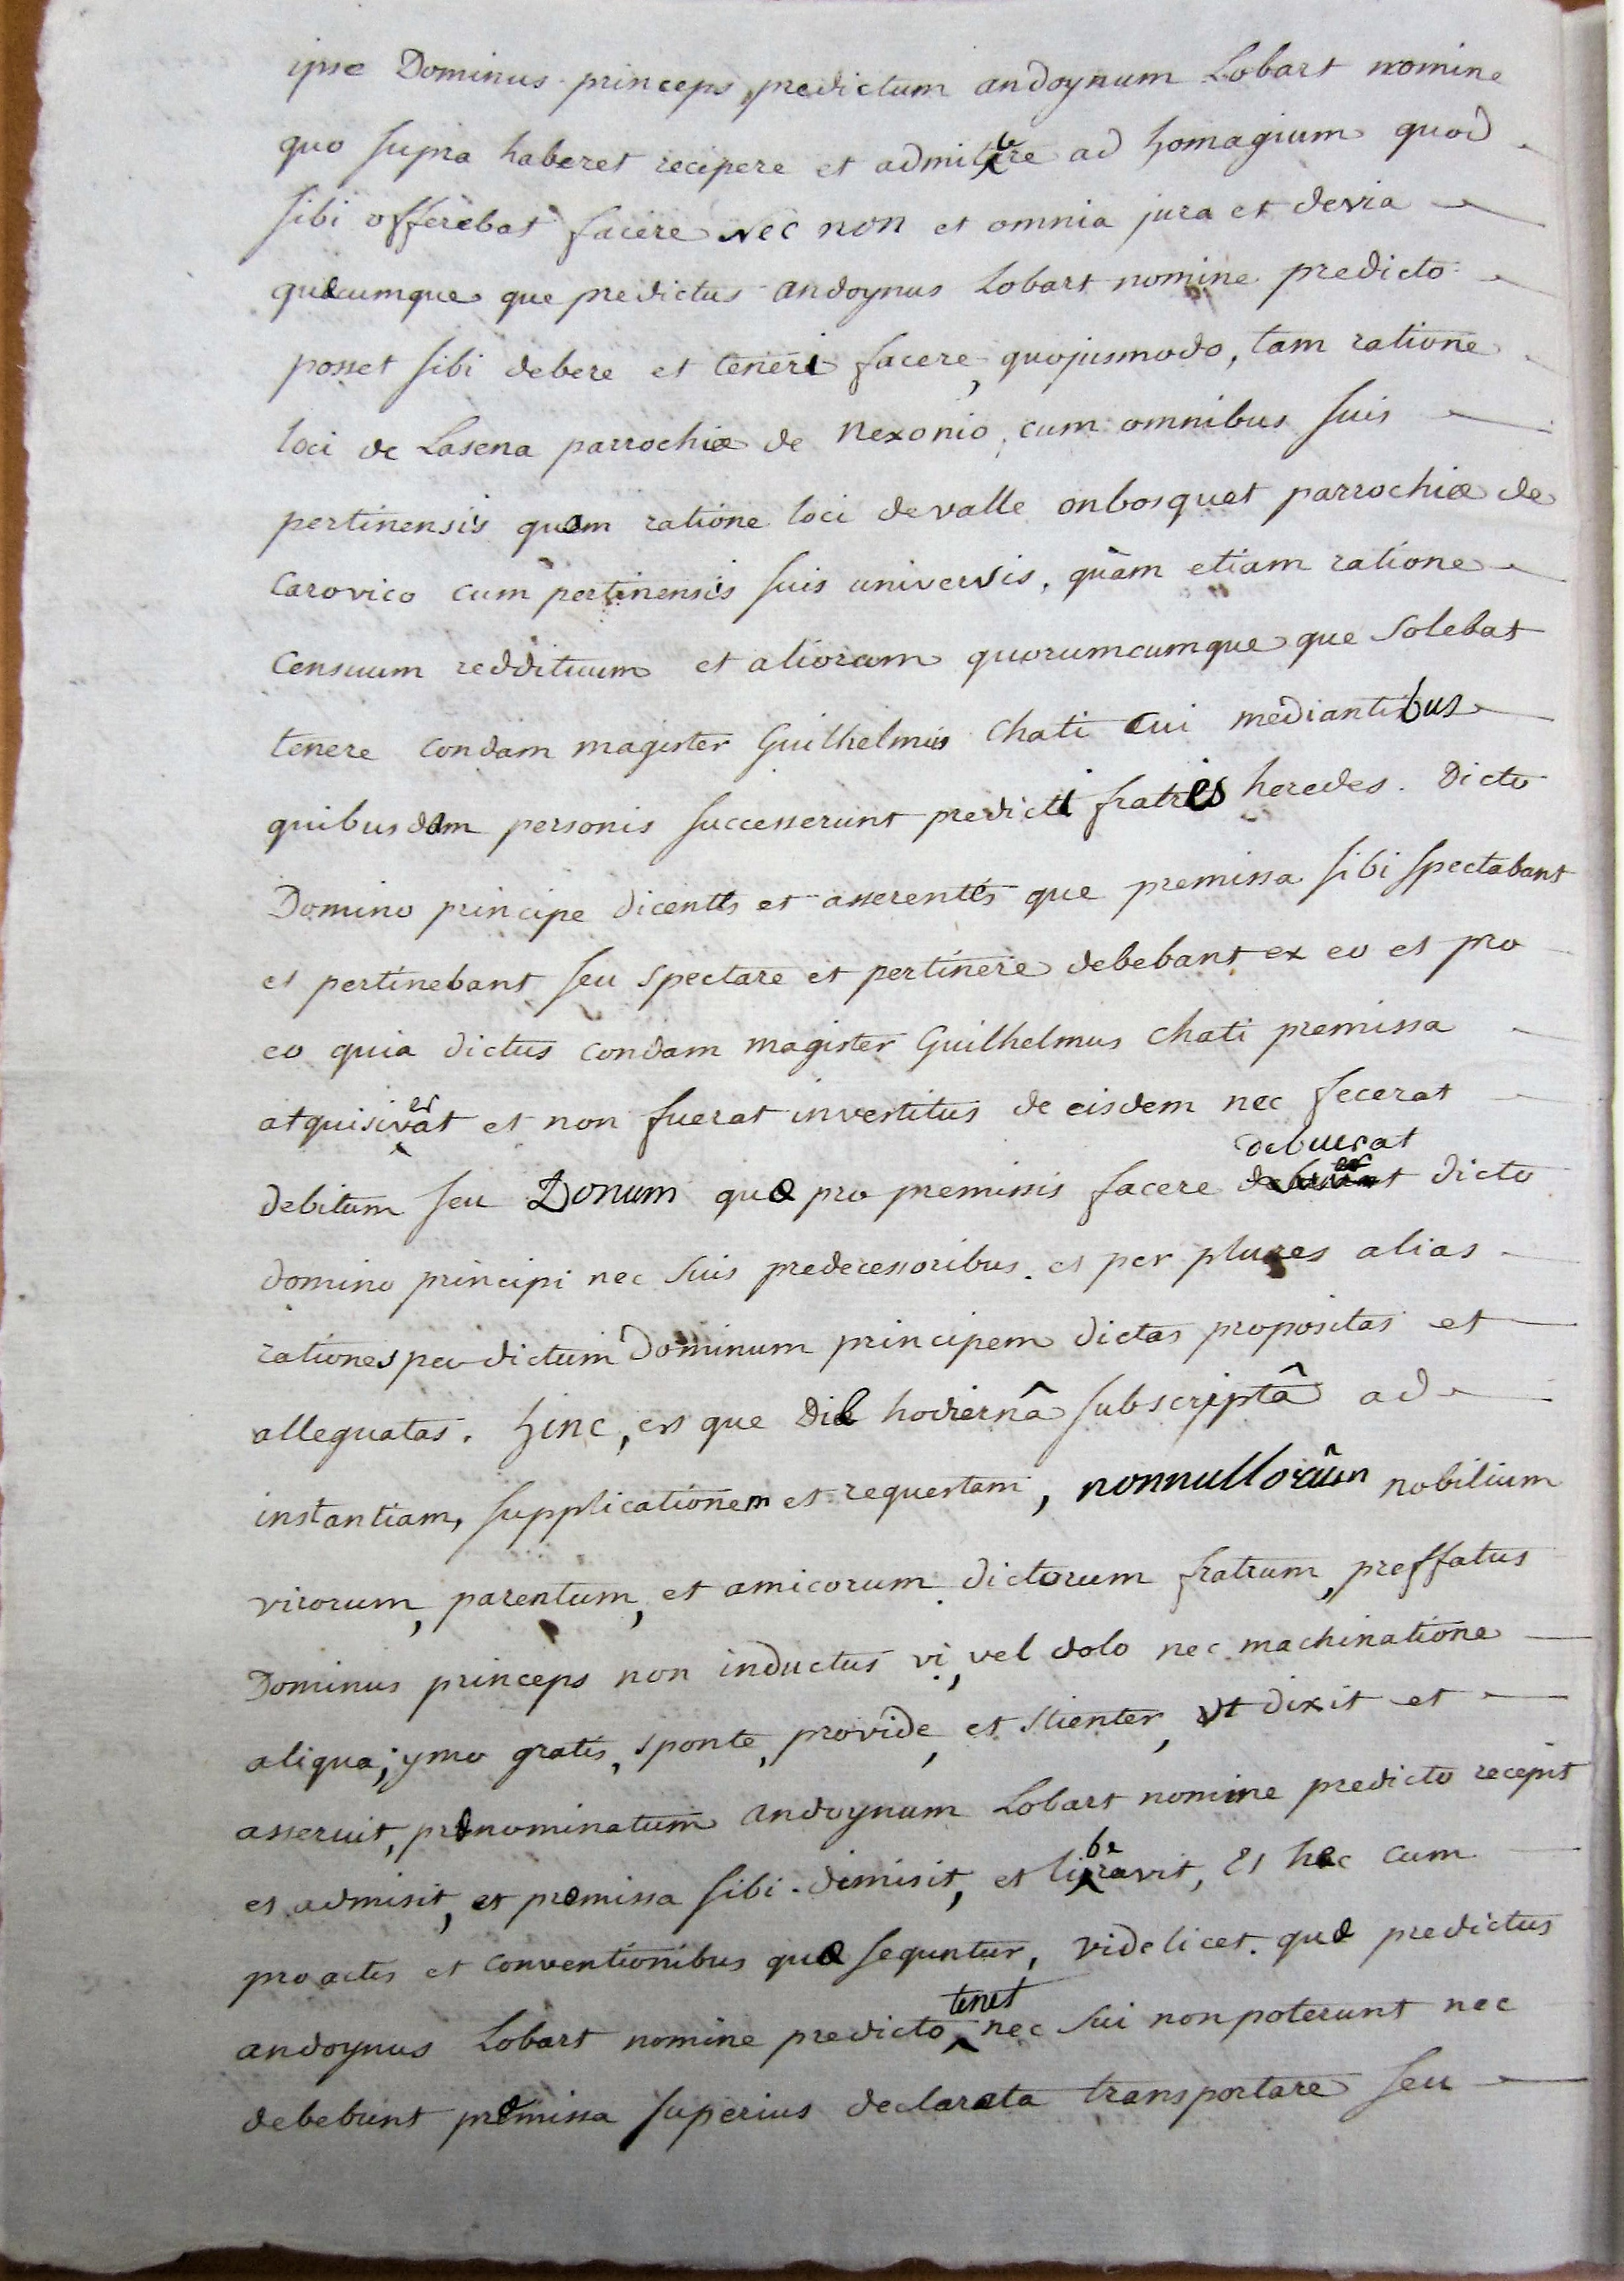 ipse Dominus princeps, predictum andoynum Lobart nomine
quo supra haberet recipere et admittere ad homagium quod
sibi offerebat facere Nec non et omnia jura et devia
quæcumque que predictus andoynus Lobart nomine predicto
posset sibi debere et teneri facere, quojusmodo, tam ratione
loci de Lasena parrochiæ de Nexonio, cum omnibus suis
pertinensis quam ratione loci devalle onbosquet parrochiæ de
Carovico cum pertinensis suis universis, quàm etiam ratione
Censuum reddituum et aliorum quorumcumque que solebat
tenere condam magister Guilhelmus Chati cui mediantibus
quibusdam personis successerunt predicti fratres heredes. Dicto
Domino principe dicentes et asserentes que premissa sibi spectabant
et pertinebant seu spectare et pertinere debebant ex eo et pro
eo quia dictus condam magister Guilhelmus Chati premissa
atquisiverat et non fuerat investitus de eisdem nec fecerat
debitum seu Donum quæ pro premissis facere debuerat dicto
domino principi nec suis predecessoribus. et per plures alias
rationes per dictum Dominum principem dictas propositas et
alleguatas. hinc, es que Die hodiernâ subscriptâ ad
instantiam, supplicationem et requestam, nonnullorûm nobilium
virorum, parentum, et amicorum dictorum fratrum, preffatus
Dominus princeps non inductus vi, vel dolo nec machinatione
aliqua; ymo gratis, sponte, provide, et scienter, ut dixit et
asseruit, prænominatum andoynum Lobart nomine predicto recepit
et admisit, et præmissa sibi dimisit, et libravit, Et hæc cum
pro actis et conventionibus quæ sequntur, videlicet. quæ predictus
andoynus Lobart nomine predicto tenet nec sui non poterunt nec
debebunt præmissa superius declarata transportare seu